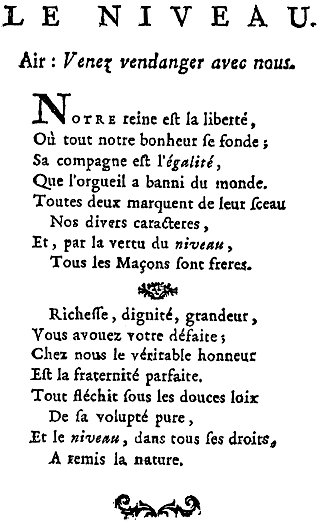 LE NIVEAU.
Air : Venez vendanger avec nous.
NOTRE reine eſt la liberté,
Où tout notre bonheur ſe fonde ;
Sa compagne eſt l'égalité,
Que l'orgueil a banni du monde.
Toutes deux marquent de leur ſceau
Nos divers caracteres,
Et, par la vertu du niveau,
Tous les Maçons ſont freres.
Richeſſe, dignité, grandeur,
Vous avouez votre défaite ;
Chez nous le véritable honneur
Eſt la fraternité parfaite.
Tout fléchit ſous les douces loix
De ſa volupté pure,
Et le niveau, dans tous ſes droits,
A remis la nature.